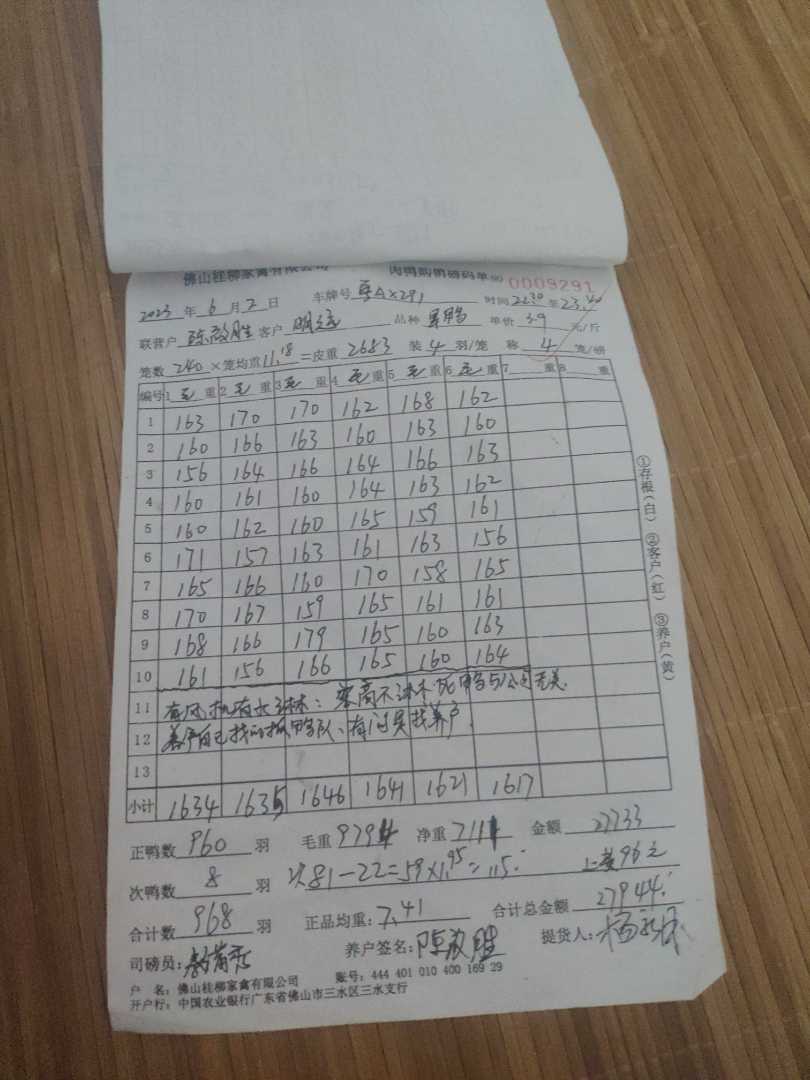 佛山桂柳家禽有限公司 肉鸭购销磅码单 NO 0009291
2023年6月2日 车牌号 粤AX291 时间 22:30至23:40
联营户 陈啟胜 客户 明远 品种 单价 3.9 元/斤
笼数 240 ×笼均重 11.18 =皮重 2683 装 4 羽/笼 称 4 笼/磅
编号 1 毛重 2 毛重 3 毛重 4 毛重 5 毛重 6 毛重 7 重 8 重
1 163 170 170 162 168 162
2 160 166 163 160 163 160
3 156 164 166 164 166 163
4 160 161 160 164 163 162
5 160 162 160 165 159 161
6 171 157 163 161 163 156
7 165 166 160 170 158 165
8 170 167 159 165 161 161
9 168 166 179 165 160 163
10 161 156 166 165 160 164
11 有风机有水淋:客商不淋水死鸭与公司无关.
12 养户自己找的抓鸭队、有问题找养户.
13
小计 1634 1635 1646 1641 1621 1617
正鸭数 960 羽 毛重 9794 净重 7111 金额 27733
次鸭数 8 羽 次81-22=59×1.95=115. 上车96元
合计数 968 羽 正品均重: 7.41 合计总金额 27944.
司磅员: 养户签名: 陈啟胜 提货人:
户 名:佛山桂柳家禽有限公司 账号:444 401 010 400 169 29
开户行:中国农业银行广东省佛山市三水区三水支行
①存根(白) ②客户(红) ③养户(黄)